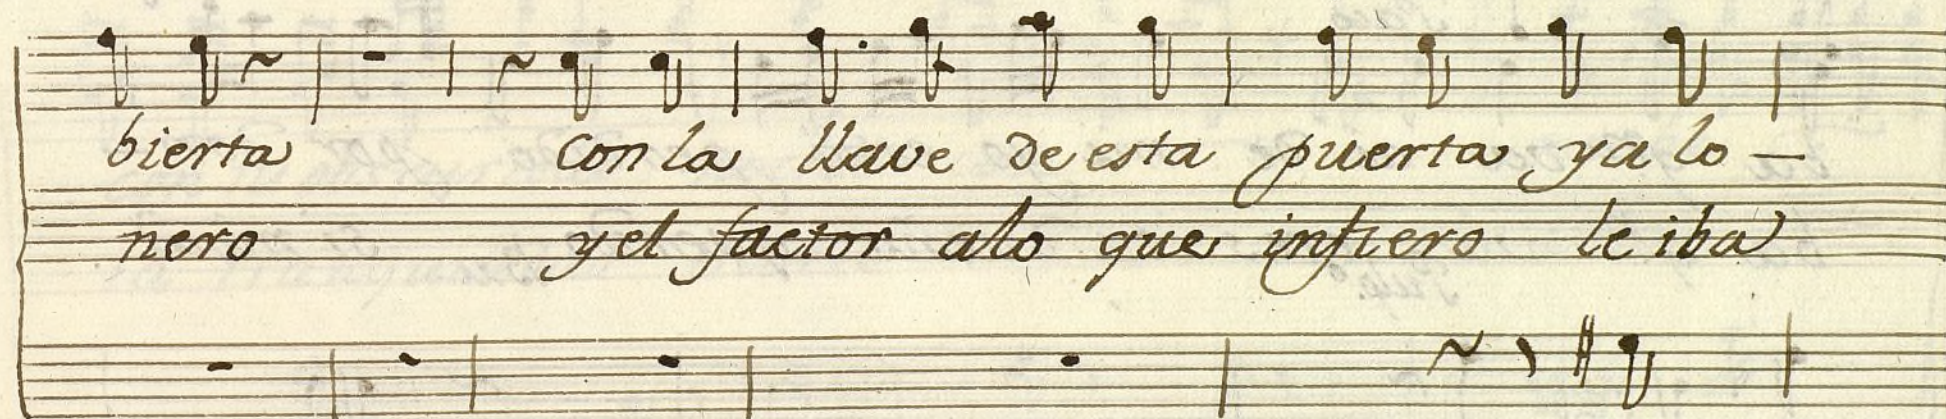 bierta con la llave de esta puerta ya lo –
nero y el factor alo que infiero le iba